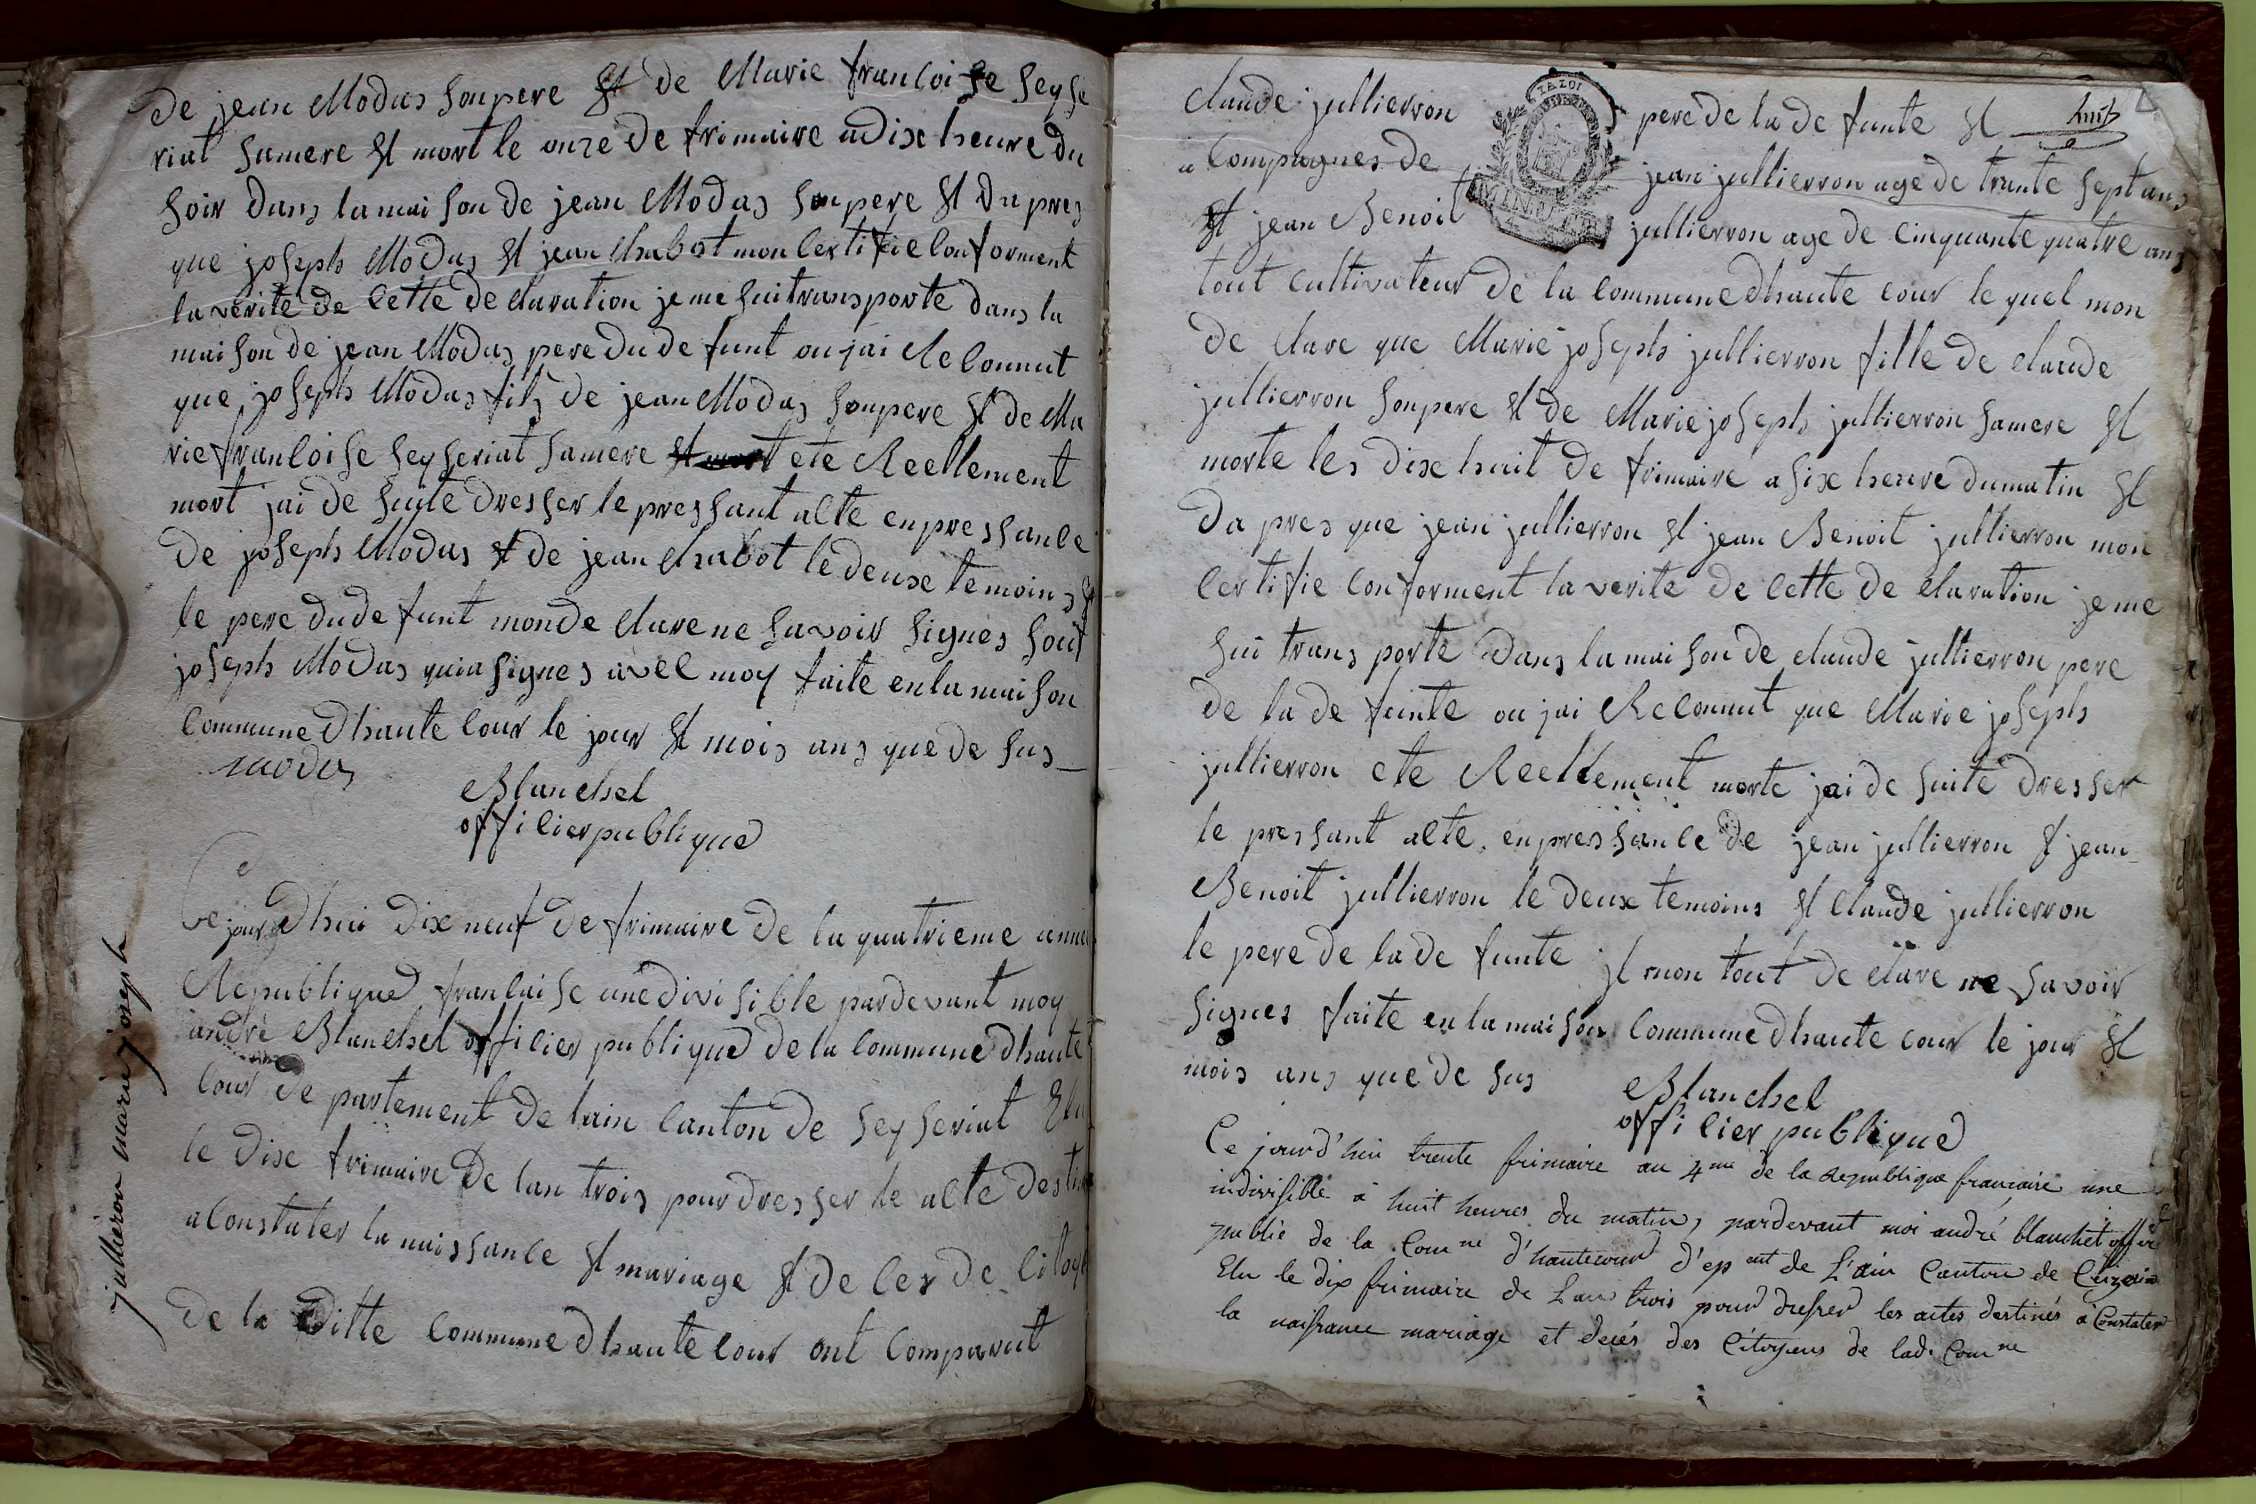 de jean Modas son pere et de Marie francoise seyse
riat sa mere et mort le onze de frimaire a dix heure du
soir dans la maison de jean Modas son pere et dapres
que joseph Modas et jean chabot mon certifie conforment
la verite de cette declaration je me sui transporte dans la
maison de jean Modas pere du defunt ou jai Reconnut
que joseph Modas fils de jean Modas son pere et de Ma
rie francoise seyseriat sa mere ete Reellement
mort jai de suite dresser le pressant acte en pressance
de joseph Modas et de jean chabot le deux temoins et
le pere du defunt mon declare ne savoir signes souf
joseph Modas qui a signes avec moy faite en la maison
commune dhaute cour le jour et mois ans que de sus
modas
Blanchet
officier publique
jullieron marie joseph
ce jourdhui dix neuf de frimaire de la quatrieme annee
Republique francaise une divisible pardevant moy
andre Blanchet officier publique de la commune dhaute
cour departement de lain canton de seyseriat Elu
le dix frimaire de lan trois pour dresser le acte destine
a constater la naissance et mariage et deces de citoye
de la ditte commune dhaute cour ont comparut
claude jullierron pere de la defunte et huit
a compagnes de jean jullierron age de trante sept ans
et jean Benoit jullierron age de cinquante quatre ans
tout cultivateur de la commune dhaute cour le quel mon
declare que Marie joseph jullierron fille de claude
jullierron son pere et de Marie joseph jullierron sa mere et
morte les dix huit de frimaire a six heure du matin et
dapres que jean jullierron et jean Benoit jullierron mon
certifie conforment la verite de cette declaration je me
sui transporte dans la maison de claude jullierron pere
de la defunte ou jai Reconnut que Marie joseph
jullierron ete Reellement morte jai de suite dresser
le pressant acte en pressance de jean jullierron et jean
Benoit jullierron le deux temoins et claude jullierron
le pere de la defunte il mon tout declare ne savoir
signes faite en la maison commune dhaute cour le jour et
mois ans que de sus
Blanchet
officier publique
Ce jourd'hui trente frimaire an 4me de la Republique francaise une
indivisible a huit heures du matin, pardevant moi andré blanchet offier
public de la Comne d'hautecour d'epant de L'ain Canton de Ceizeriat
Elu le dix frimaire de L'an trois pour dresser les actes destinés a Constater
la naissance mariage et decés des Citoyens de lad. Comne